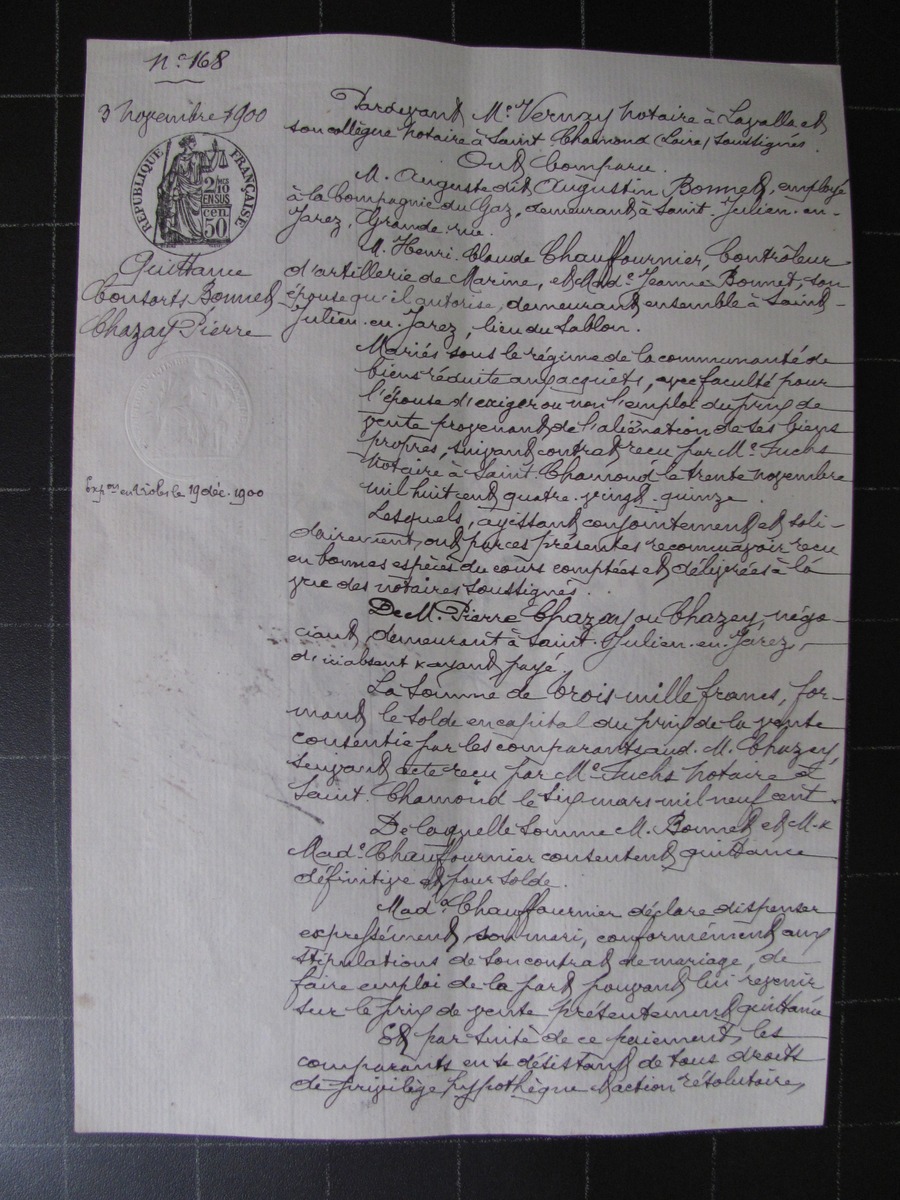 N° 168
3 Novembre 1900
RÉPUBLIQUE FRANÇAISE
2/10
EN SUS
50 cen.
Quittance
Consorts Bonnet
Chazay Pierre
Expon en rôles le 19 déc. 1900
Pardevant Me Vernay notaire à Lavalla et
son collègue notaire à Saint Chamond (Loire) soussignés.
Ont Comparu.
M. Auguste dit Augustin Bonnet, employé
à la Compagnie du Gaz, demeurant à Saint-Julien-en-
Jarez, Grande rue.
M. Henri-Claude Chauffournier, Contrôleur
d'artillerie de Marine, et Made Jeanne Bonnet, son
épouse qu'il autorise, demeurant ensemble à Saint-
Julien-en-Jarez, lieu du Sablon.
Mariés sous le régime de la communauté de
biens réduite aux acquets, avec faculté pour
l'épouse d'exiger ou non l'emploi du prix de
vente provenant de l'aliénation de ses biens
propres, suivant contrat reçu par Me Fuchs
notaire à Saint-Chamond le trente novembre
mil huit cent quatre-vingt-quinze.
Lesquels, agissant conjointement et soli-
dairement, ont par ces présentes reconnu avoir reçu
en bonnes espèces du cours comptées et délivrées à la
vue des notaires soussignés.
De M. Pierre Chazay, ou Chazey, négo-
ciant, demeurant à Saint-Julien-en-Jarez,
d'ici absent x ayant payé.
La Somme de trois mille francs, for-
mant le solde en capital du prix de la vente
consentie par les comparants aud. M. Chazay,
suivant acte reçu par Me Fuchs notaire à
Saint-Chamond le six mars mil neuf cent.
De laquelle somme M. Bonnet et M. x
Made Chauffournier consentent quittance
définitive et pour solde.
Made Chauffournier déclare dispenser
expressément son mari, conformément aux
stipulations de son contrat de mariage, de
faire emploi de la part pouvant lui revenir
sur le prix de vente présentement quittancé
Et par suite de ce paiement, les
comparants en se désistant de tous droits
de privilège hypothèque & action résolutoire,